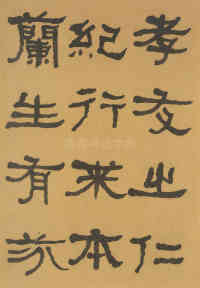 孝友之仁
紀行来本
蘭生有芬